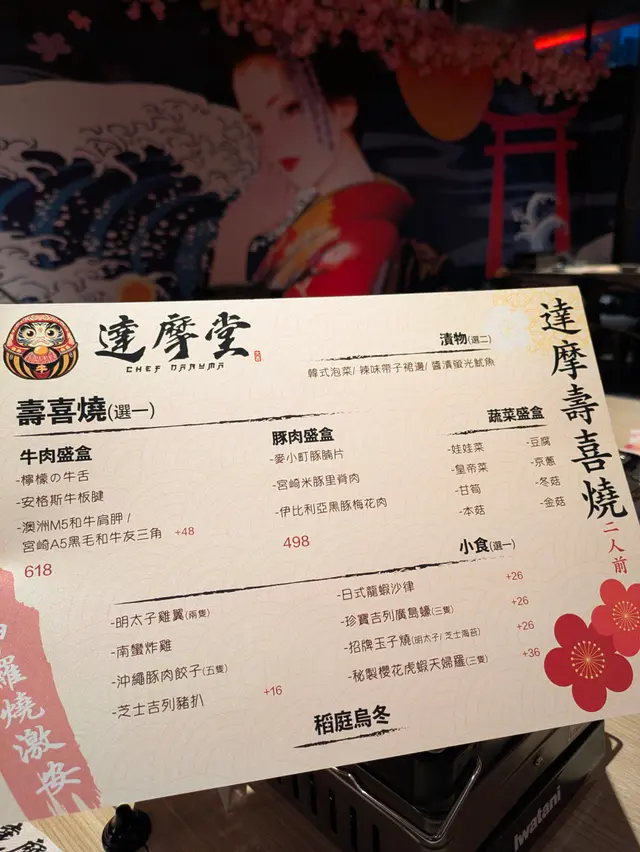 達摩堂
CHEF DARUMA
漬物(選二)
韓式泡菜/ 辣味帶子裙邊/ 醬漬螢光魷魚
達摩壽喜燒
二人前
壽喜燒(選一)
牛肉盛盒
-檸檬の牛舌
-安格斯牛板腱
-澳洲M5和牛肩胛 /
宮崎A5黑毛和牛友三角 +48
618
豚肉盛盒
-麥小町豚腩片
-宮崎米豚里脊肉
-伊比利亞黑豚梅花肉
498
蔬菜盛盒
-娃娃菜
-皇帝菜
-甘筍
-本菇
-豆腐
-京蔥
-冬菇
-金菇
小食(選一)
-明太子雞翼(兩隻)
-南蠻炸雞
-沖繩豚肉餃子(五隻)
-芝士吉列豬扒 +16
-日式龍蝦沙律 +26
-珍寶吉列廣島蠔(三隻) +26
-招牌玉子燒(明太子/ 芝士海苔) +26
-秘製櫻花虎蝦天婦羅(三隻) +36
稻庭烏冬
羅燒激安
Iwatani